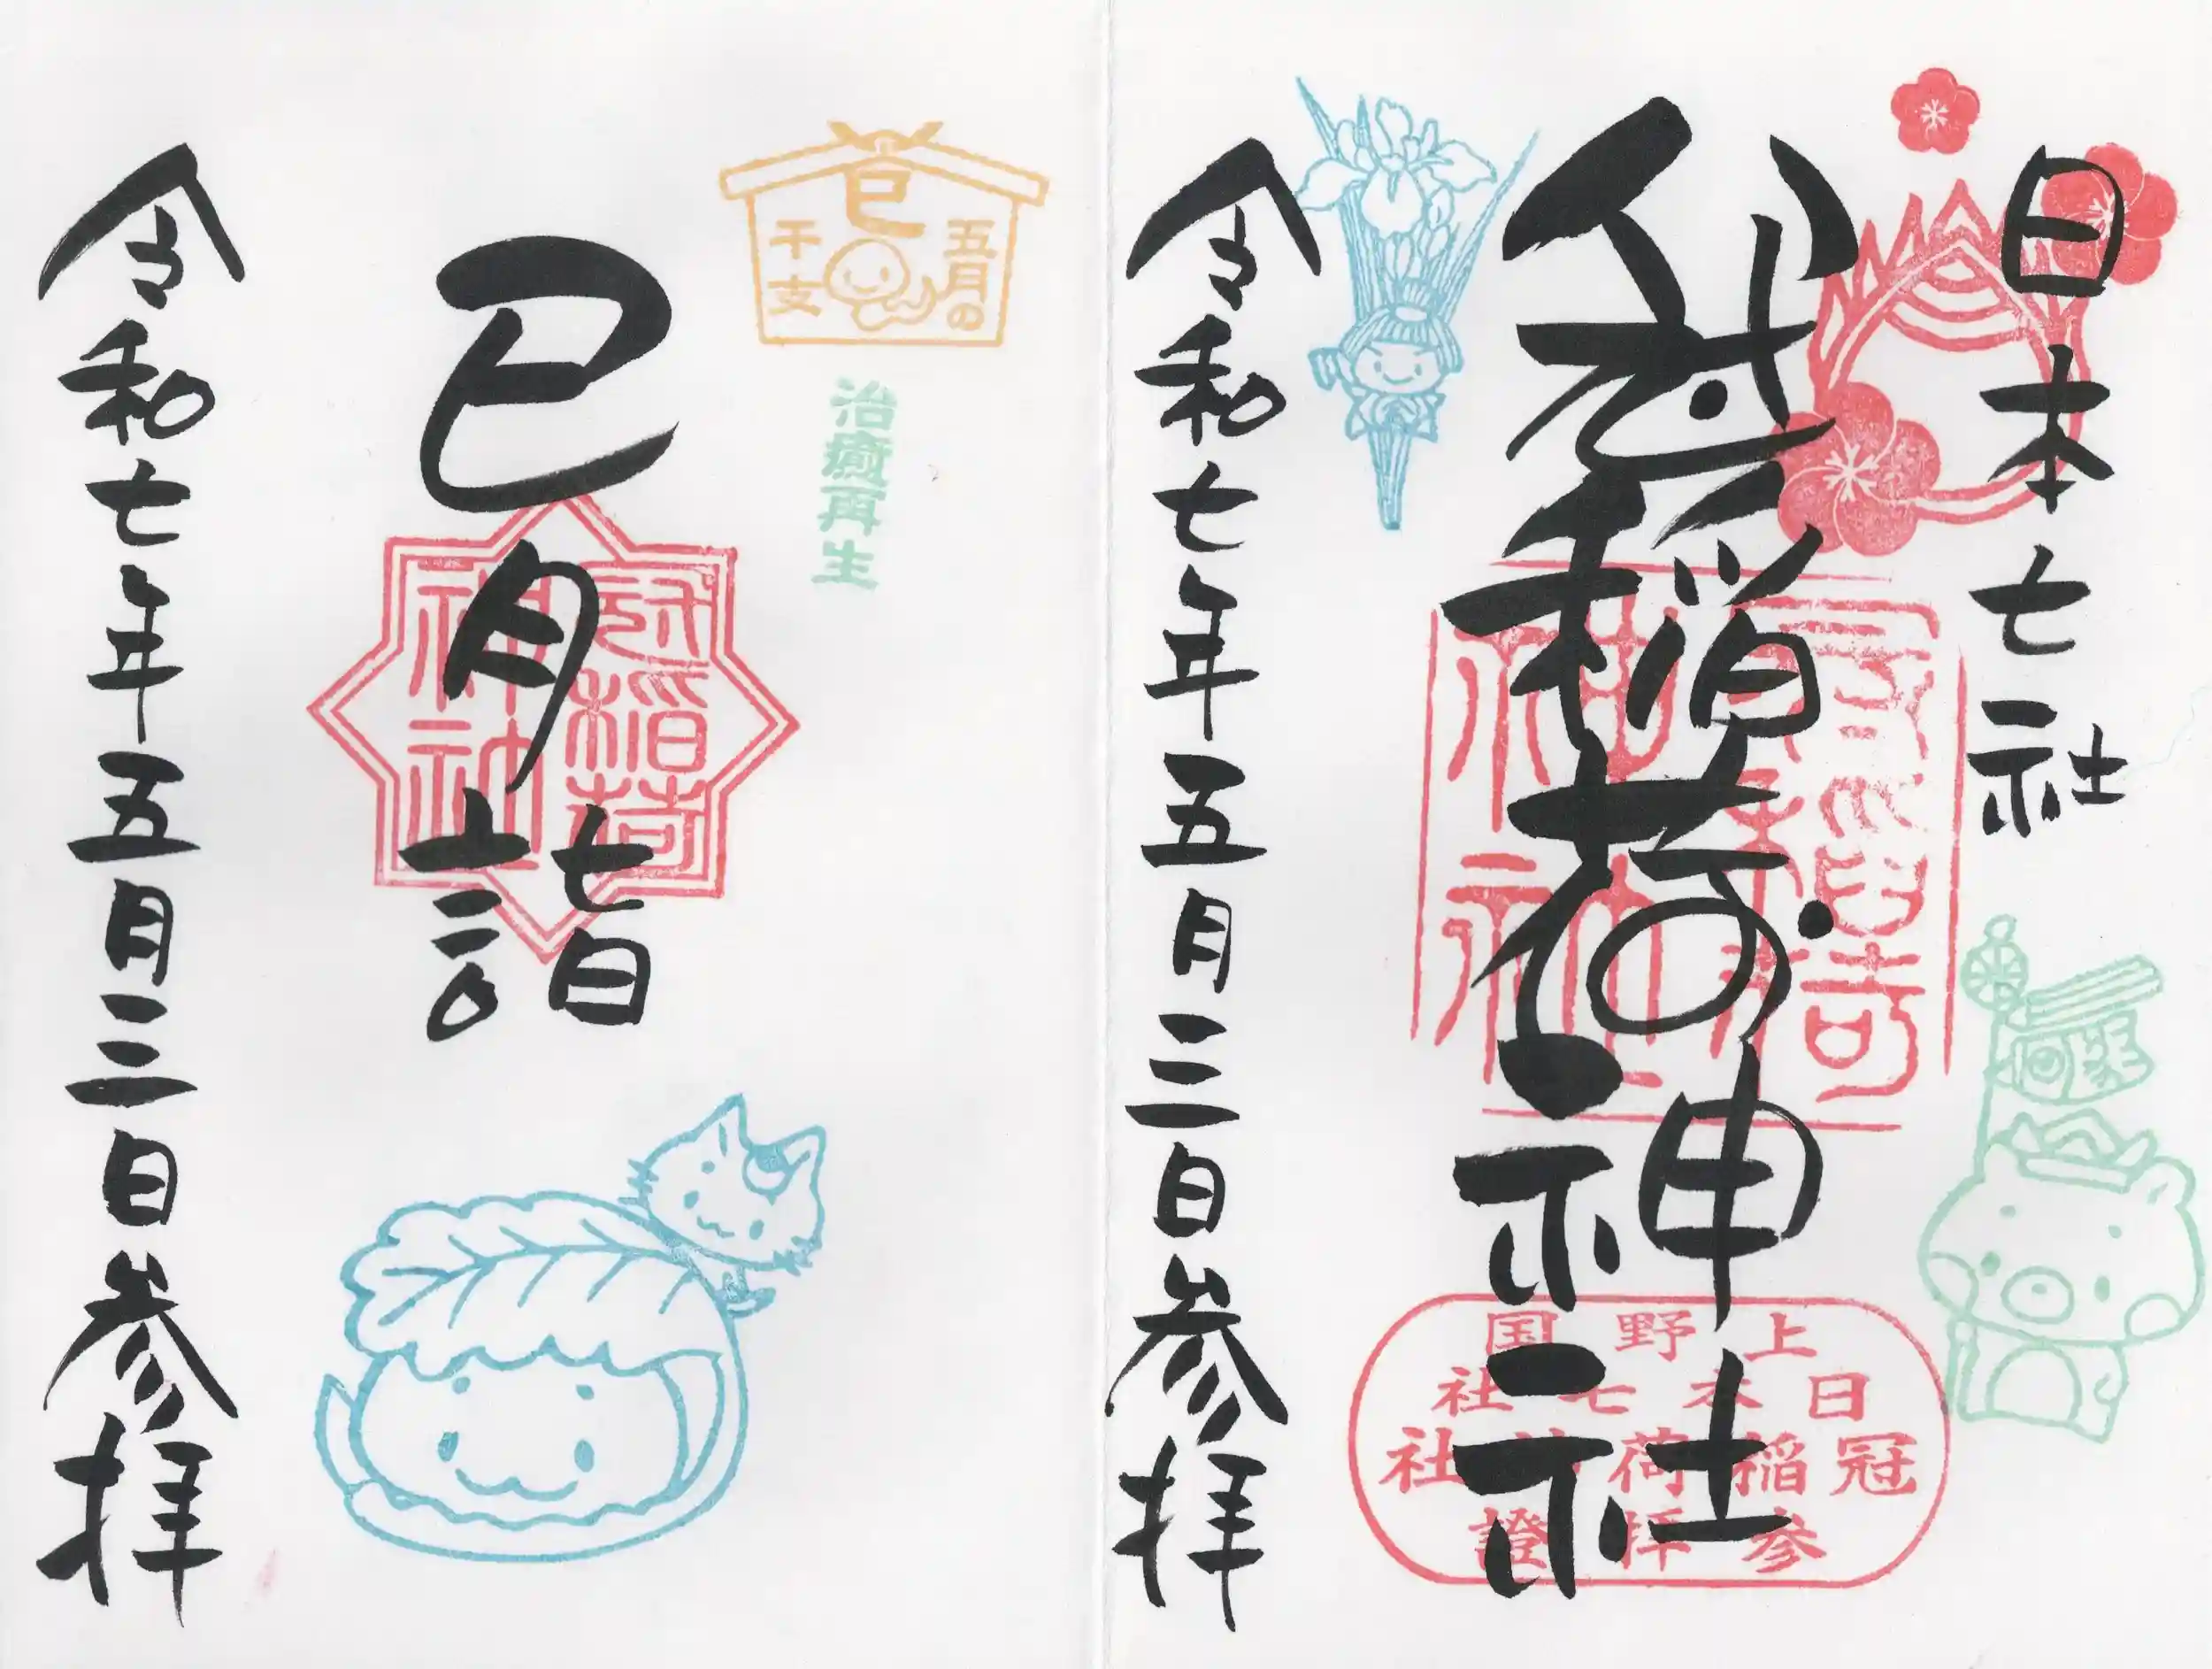 日本七社
冠稲荷神社
令和七年五月三日参拝
冠稲荷
神社
上野国
日本七社
冠稲荷神社
参拝證
五月の
巳
干支
治癒再生
巳月詣
冠稲荷
神社
令和七年五月三日参拝